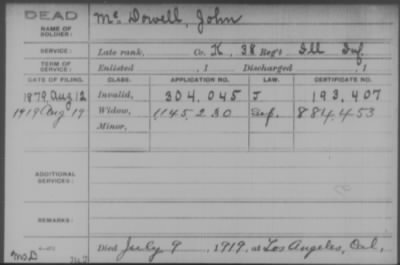 DEAD
NAME OF SOLDIER: Mc Dowell, John
SERVICE: Late rank, Co. K, 38 Reg't Ill Inf
TERM OF SERVICE: Enlisted , 1 Discharged , 1
DATE OF FILING. CLASS. APPLICATION NO. LAW. CERTIFICATE NO.
1879, Aug 12 Invalid, 304,045 J 193,407
1919 Aug 19 Widow, 1145230 884,453
Minor,
ADDITIONAL SERVICES:
REMARKS:
Died July 9 1919, at Los Angeles, Cal.
McD